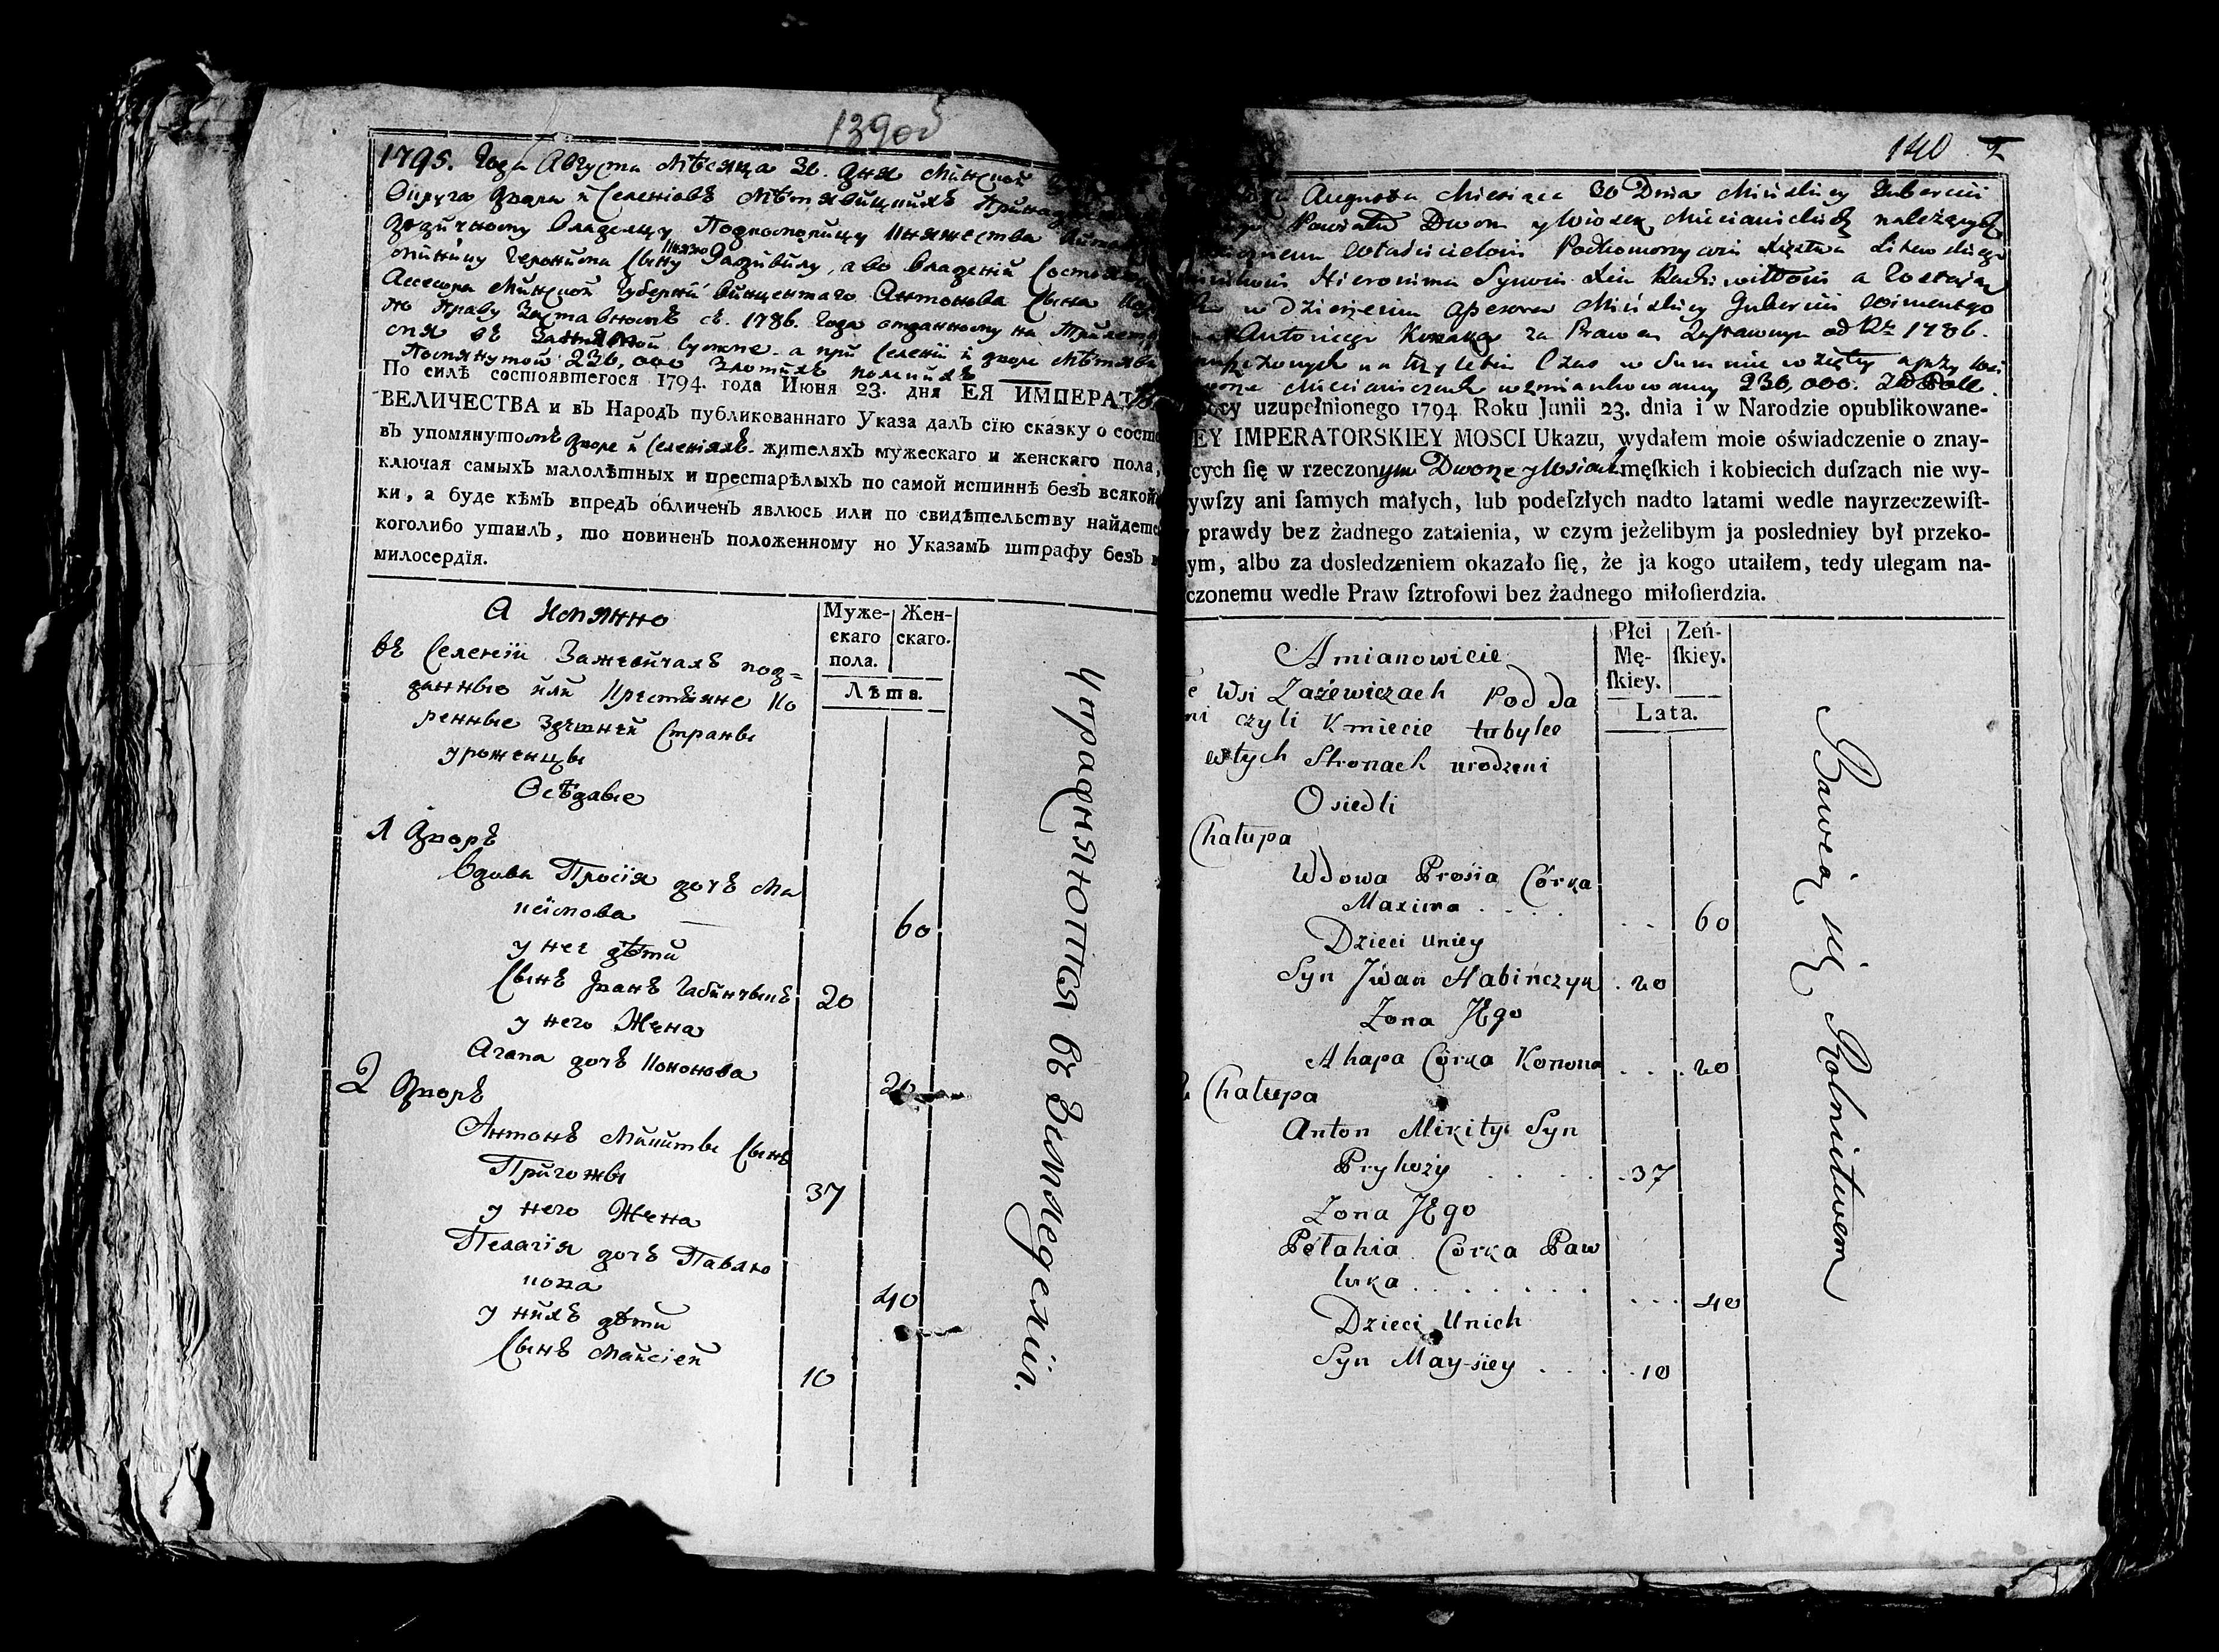 139об
1795. Года Августа Мѣсяца 30. дня Минской
Округа двора и Селеніовъ
владелцу Подкоморицу Княжества
Герониму Сыну Князю Радзивилу, а во владеніи
Асесора Минской Губерніи Винцентаго Антонова Сына
по праву Заставномъ съ. 1786. Года отданному на
въ суммѣ а при Селеніи и дворе
Помянутой 230,000 Злотыхъ полскихъ
По силѣ состоявшегося 1794. года Июня 23. дня ЕЯ ИМПЕРАТ
ВЕЛИЧЕСТВА и въ Народъ публикованнаго Указа далъ сію сказку о состо
въ упомянутомъ дворе и Селеніяхъ жителяхъ мужескаго и женскаго пола,
ключая самыхъ малолѣтныхъ и престарѣлыхъ по самой истиннѣ безъ всякой
ки, а буде кѣмъ впредь обличенъ явлюсь или по свидѣтельству найдетс
коголибо утаилъ, то повиненъ положенному по Указамъ штрафу безъ
милосердія.
А имянно
Муже-скаго пола.
Жен-скаго.
Лѣта.
въ Селеніи Зажевичахъ под=
данные или Крестіяне Ко
ренные здешней Страны
уроженцы
Осѣдлые
1 Дворъ
Вдова Просія дочъ Ма
ксимова 60
у нее дѣти
Сынъ Иванъ Габинчыкъ 20
у него Жена
Агапа дочъ Кононова 20
2 Дворъ
Антонъ Микиты Сынъ
Пригожы 37
у него Жена
Пелагія дочъ Павлю
ка 40
у нихъ дѣти
Сынъ Майсіей 10
Упражняются въ Земледеліи.
140
Augusta Miesiąca 30 Dnia Mińskiey Gubernii
Powiatu Dworu y Wiosek należących
Właścicielowi Podkomorzycowi Xięstwa Litewskiego
Hieronima Synowi Xciu Radziwiłłowi a zostaiąc
w dzierżeniu Asesora Mińskiey Gubernii Wincentego
Antoniego za Prawem Zastawnym od Rku 1786.
na trzy letni Czas w Summie wziętey a przy wsi
wzmiankowaney 230,000. Zł Poll.
ocy uzupełnionego 1794 Roku Junii 23. dnia i w Narodzie opublikowane-
EY IMPERATORSKIEY MOSCI Ukazu, wydałem moie oświadczenie o znay-
cych ſię w rzeczonym Dworze y Wsiach męſkich i kobiecich duſzach nie wy-
ywſzy ani ſamych małych, lub podeſzłych nadto latami wedle nayrzeczewiſt-
prawdy bez żadnego zataienia, w czym jeżelibym ja posledniey był przeko-
ym, albo za dosledzeniem okazało ſię, że ja kogo utaiłem, tedy ulegam na-
czonemu wedle Praw ſztrofowi bez żadnego miłoſierdzia.
Amianowicie
Płci Mę-ſkiey.
Zeń-ſkiey.
Lata.
Wsi Zażewiczach Podda
ni czyli Kmiecie tubylce
wtych Stronach urodzeni
Osiedli
Chałupa
Wdowa Prosia Córka
Maxima 60
Dzieci Uniey
Syn Jwan Habińczyk 20
Zona JEgo
Ahapa Córka Konona 20
Chałupa
Anton Mikity Syn
Pryhoży 37
Zona JEgo
Pełahia Córka Paw
luka 40
Dzieci Unich
Syn May-siey 10
Bawią się Rolnitwem